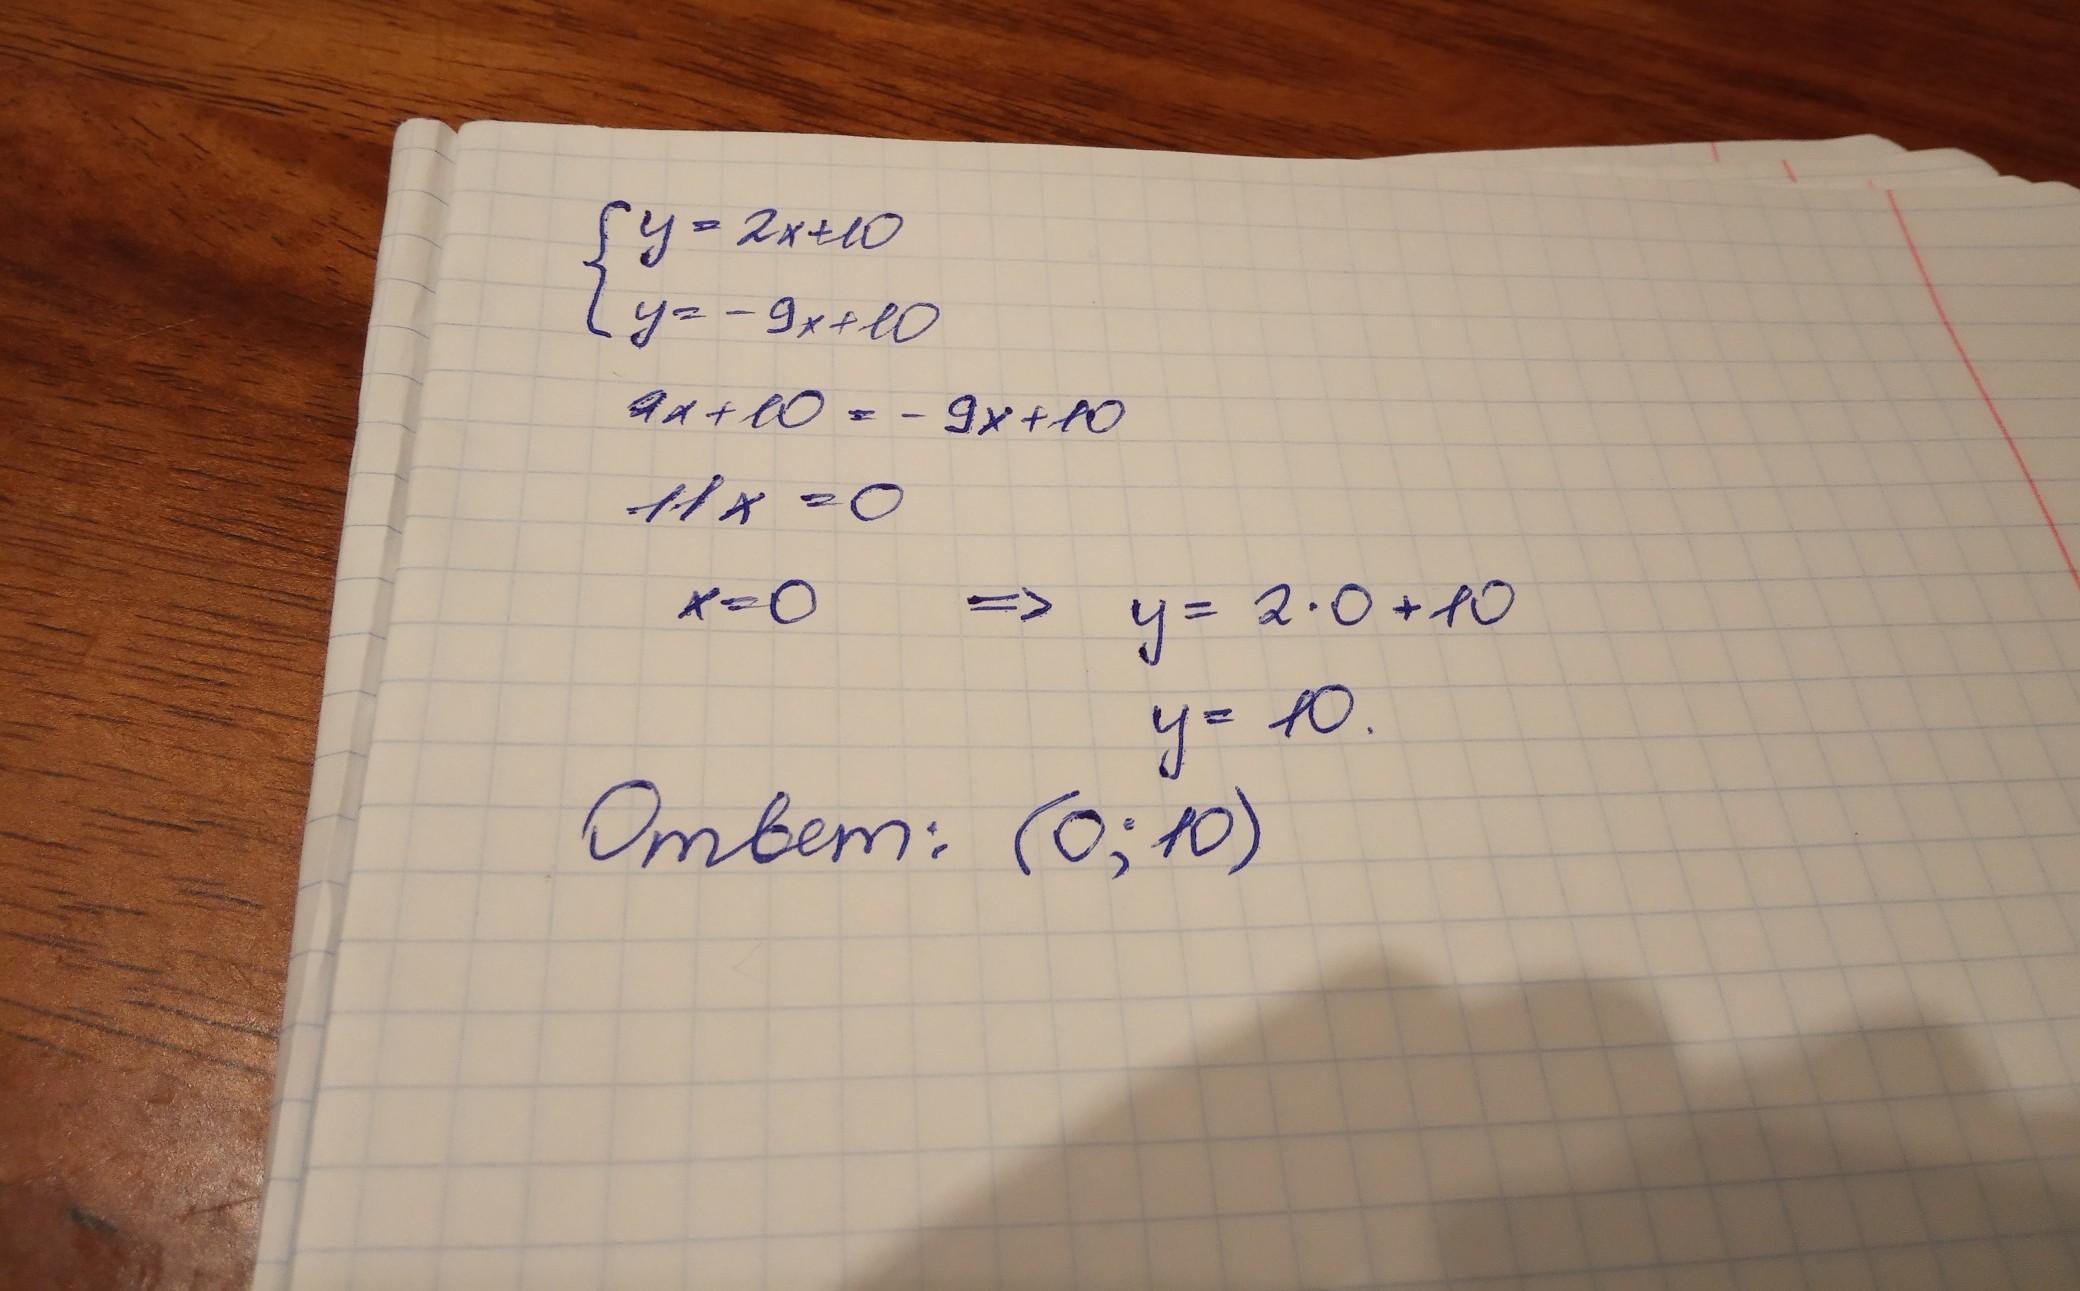 { y = 2x+10
y = - 9x+10
2x+10 = - 9x+10
11x = 0
x=0 => y = 2·0+10
y = 10.
Ответ: (0; 10)